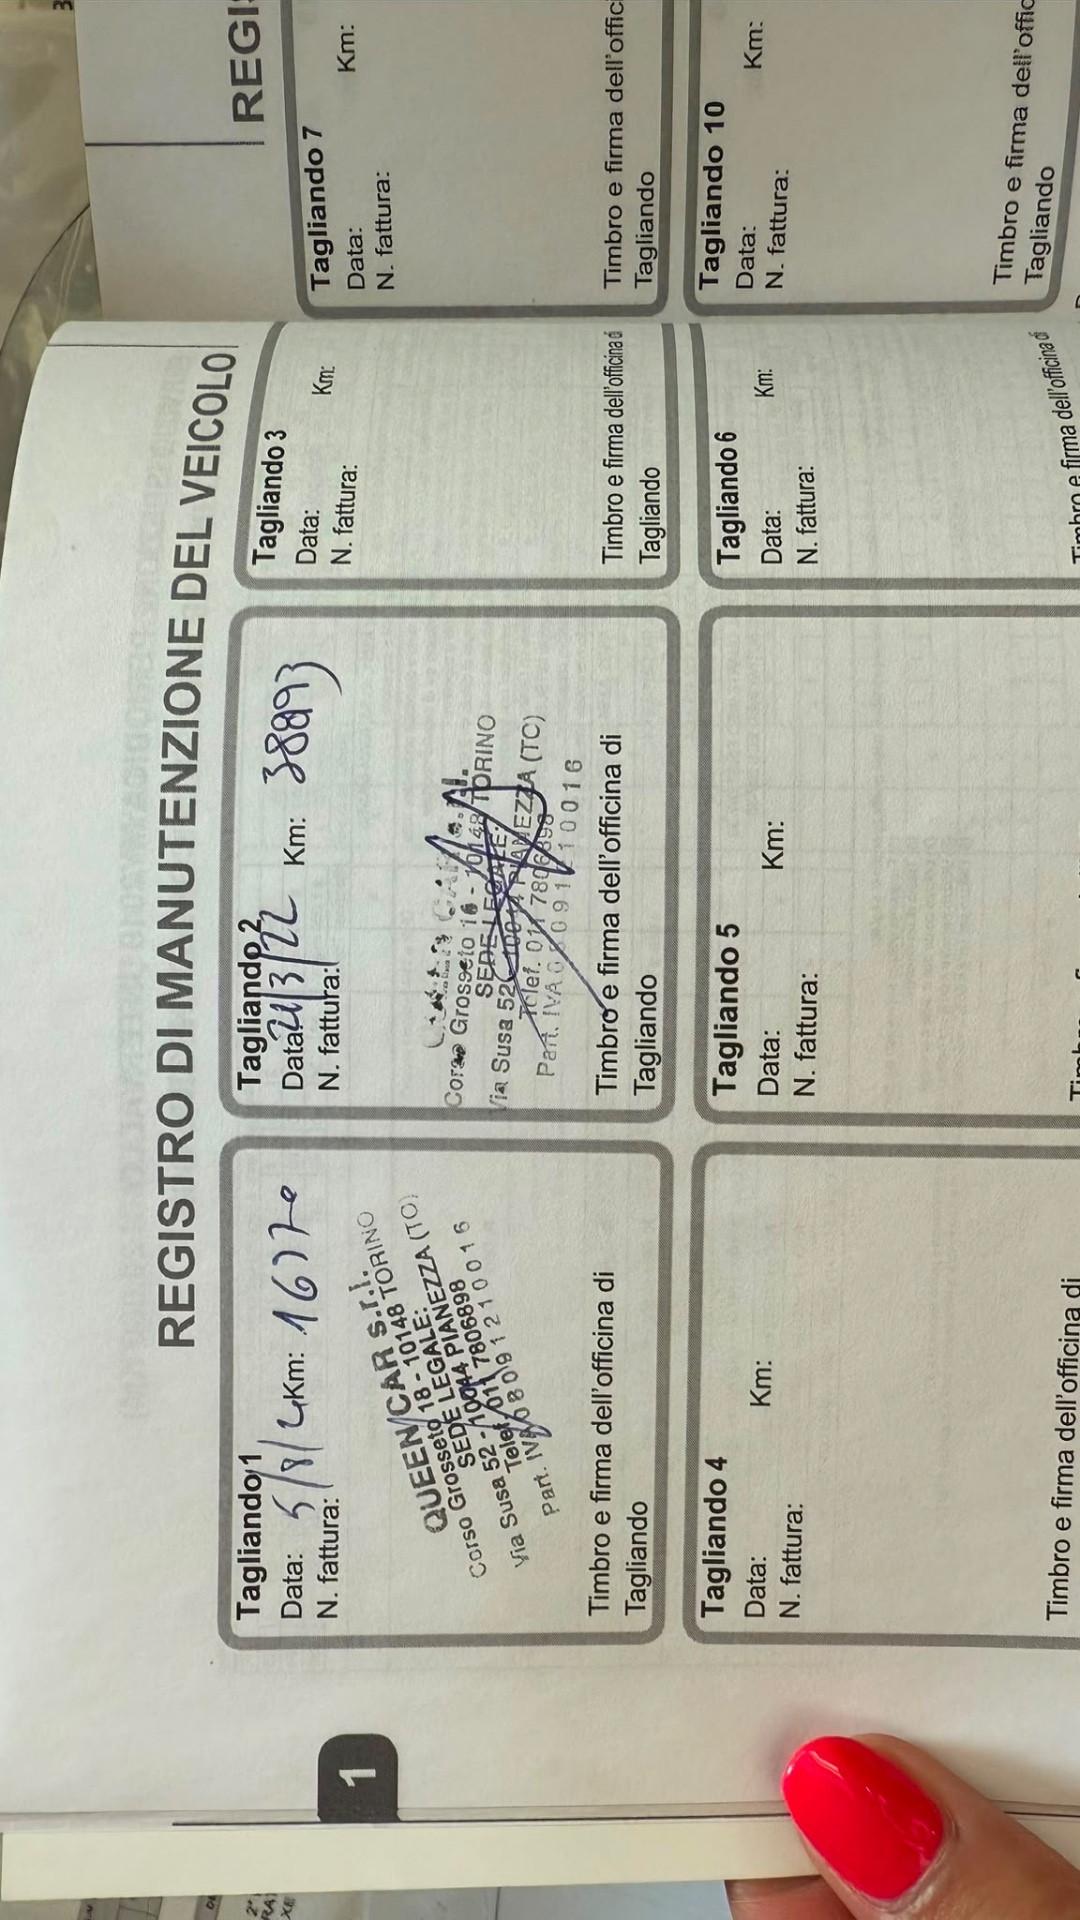 REGISTRO DI MANUTENZIONE DEL VEICOLO
Tagliando 1
Data: 5/8/21 Km: 16770
N. fattura:
QUEEN CAR s.r.l.
Corso Grosseto 18 - 10148 TORINO
SEDE LEGALE:
Via Susa 52 - 10044 PIANEZZA (TO)
Telef. 011 7806898
Part. IVA 08091210016
Timbro e firma dell'officina di
Tagliando
Tagliando 2
Data: 21/3/22 Km: 38893
N. fattura:
Corso Grosseto 18 - 10148 TORINO
SEDE LEGALE:
Via Susa 52 - 10044 PIANEZZA (TO)
Telef. 011 7806898
Part. IVA 08091210016
Timbro e firma dell'officina di
Tagliando
Tagliando 3
Data: Km:
N. fattura:
Timbro e firma dell'officina di
Tagliando
Tagliando 4
Data: Km:
N. fattura:
Timbro e firma dell'officina di
Tagliando 5
Data: Km:
N. fattura:
Tagliando 6
Data: Km:
N. fattura:
Timbro e firma dell'officina di
1
REGIS
Tagliando 7
Data: Km:
N. fattura:
Timbro e firma dell'offici
Tagliando
Tagliando 10
Data: Km:
N. fattura:
Timbro e firma dell'offic
Tagliando